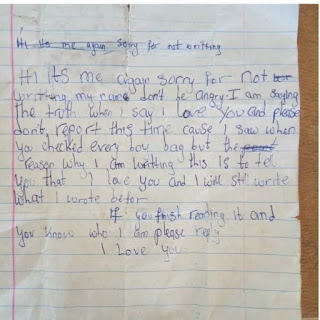 Hi its me again sorry for not writhing
Hi ITS me again sorry for not
writhing my name don't be angry I am saying
The truth when I say I love you and please
dont report this time cause I saw when
you checked every boy bag but the
reason why I am writhing this is to tel
you that I love you and I will still write
what I wrote befor
If you finish reading it and
you know who I am please reply
I Love you